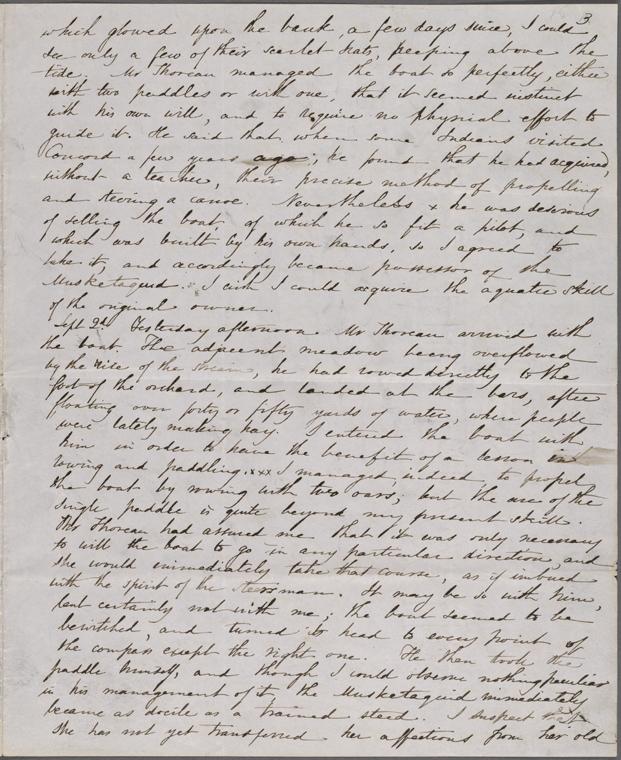 3
which glowed upon the bank, a few days since, I could
see only a few of their scarlet hats, peeping above the
tide. Mr Thoreau managed the boat so perfectly, either
with two paddles or with one, that it seemed instinct
with his own will, and to require no physical effort to
guide it. He said that when some Indians visited
Concord a few years ago, he found that he had acquired,
without a teacher, their precise method of propelling
and steering a canoe. Nevertheless x he was desirous
of selling the boat, of which he is so fit a pilot, and
which was built by his own hands, so I agreed to
take it, and accordingly became possessor of the
Musketaquid. I wish I could acquire the aquatic skill
of the original owner.
Sept 2d. Yesterday afternoon Mr Thoreau arrived with
the boat. The adjacent meadow being overflowed
by the rise of the stream, he had rowed directly to the
foot of the orchard, and landed at the bars, after
floating over forty or fifty yards of water, where people
were lately making hay. I entered the boat with
him in order to have the benefit of a lesson in
rowing and paddling. x x x I managed, indeed, to propel
the boat by rowing with two oars; but the use of the
single paddle is quite beyond my present skill.
Mr Thoreau had assured me that it was only necessary
to will the boat to go in any particular direction, and
she would immediately take that course, as if imbued
with the spirit of the steersman. It may be so with him,
but certainly not with me; the boat seemed to be
bewitched, and turned its head to every point of
the compass except the right one. He then took the
paddle himself, and though I could observe nothing peculiar
in his management of it, the Musketaquid immediately
became as docile as a trained steed. I suspect that
she has not yet transferred her affections from her old